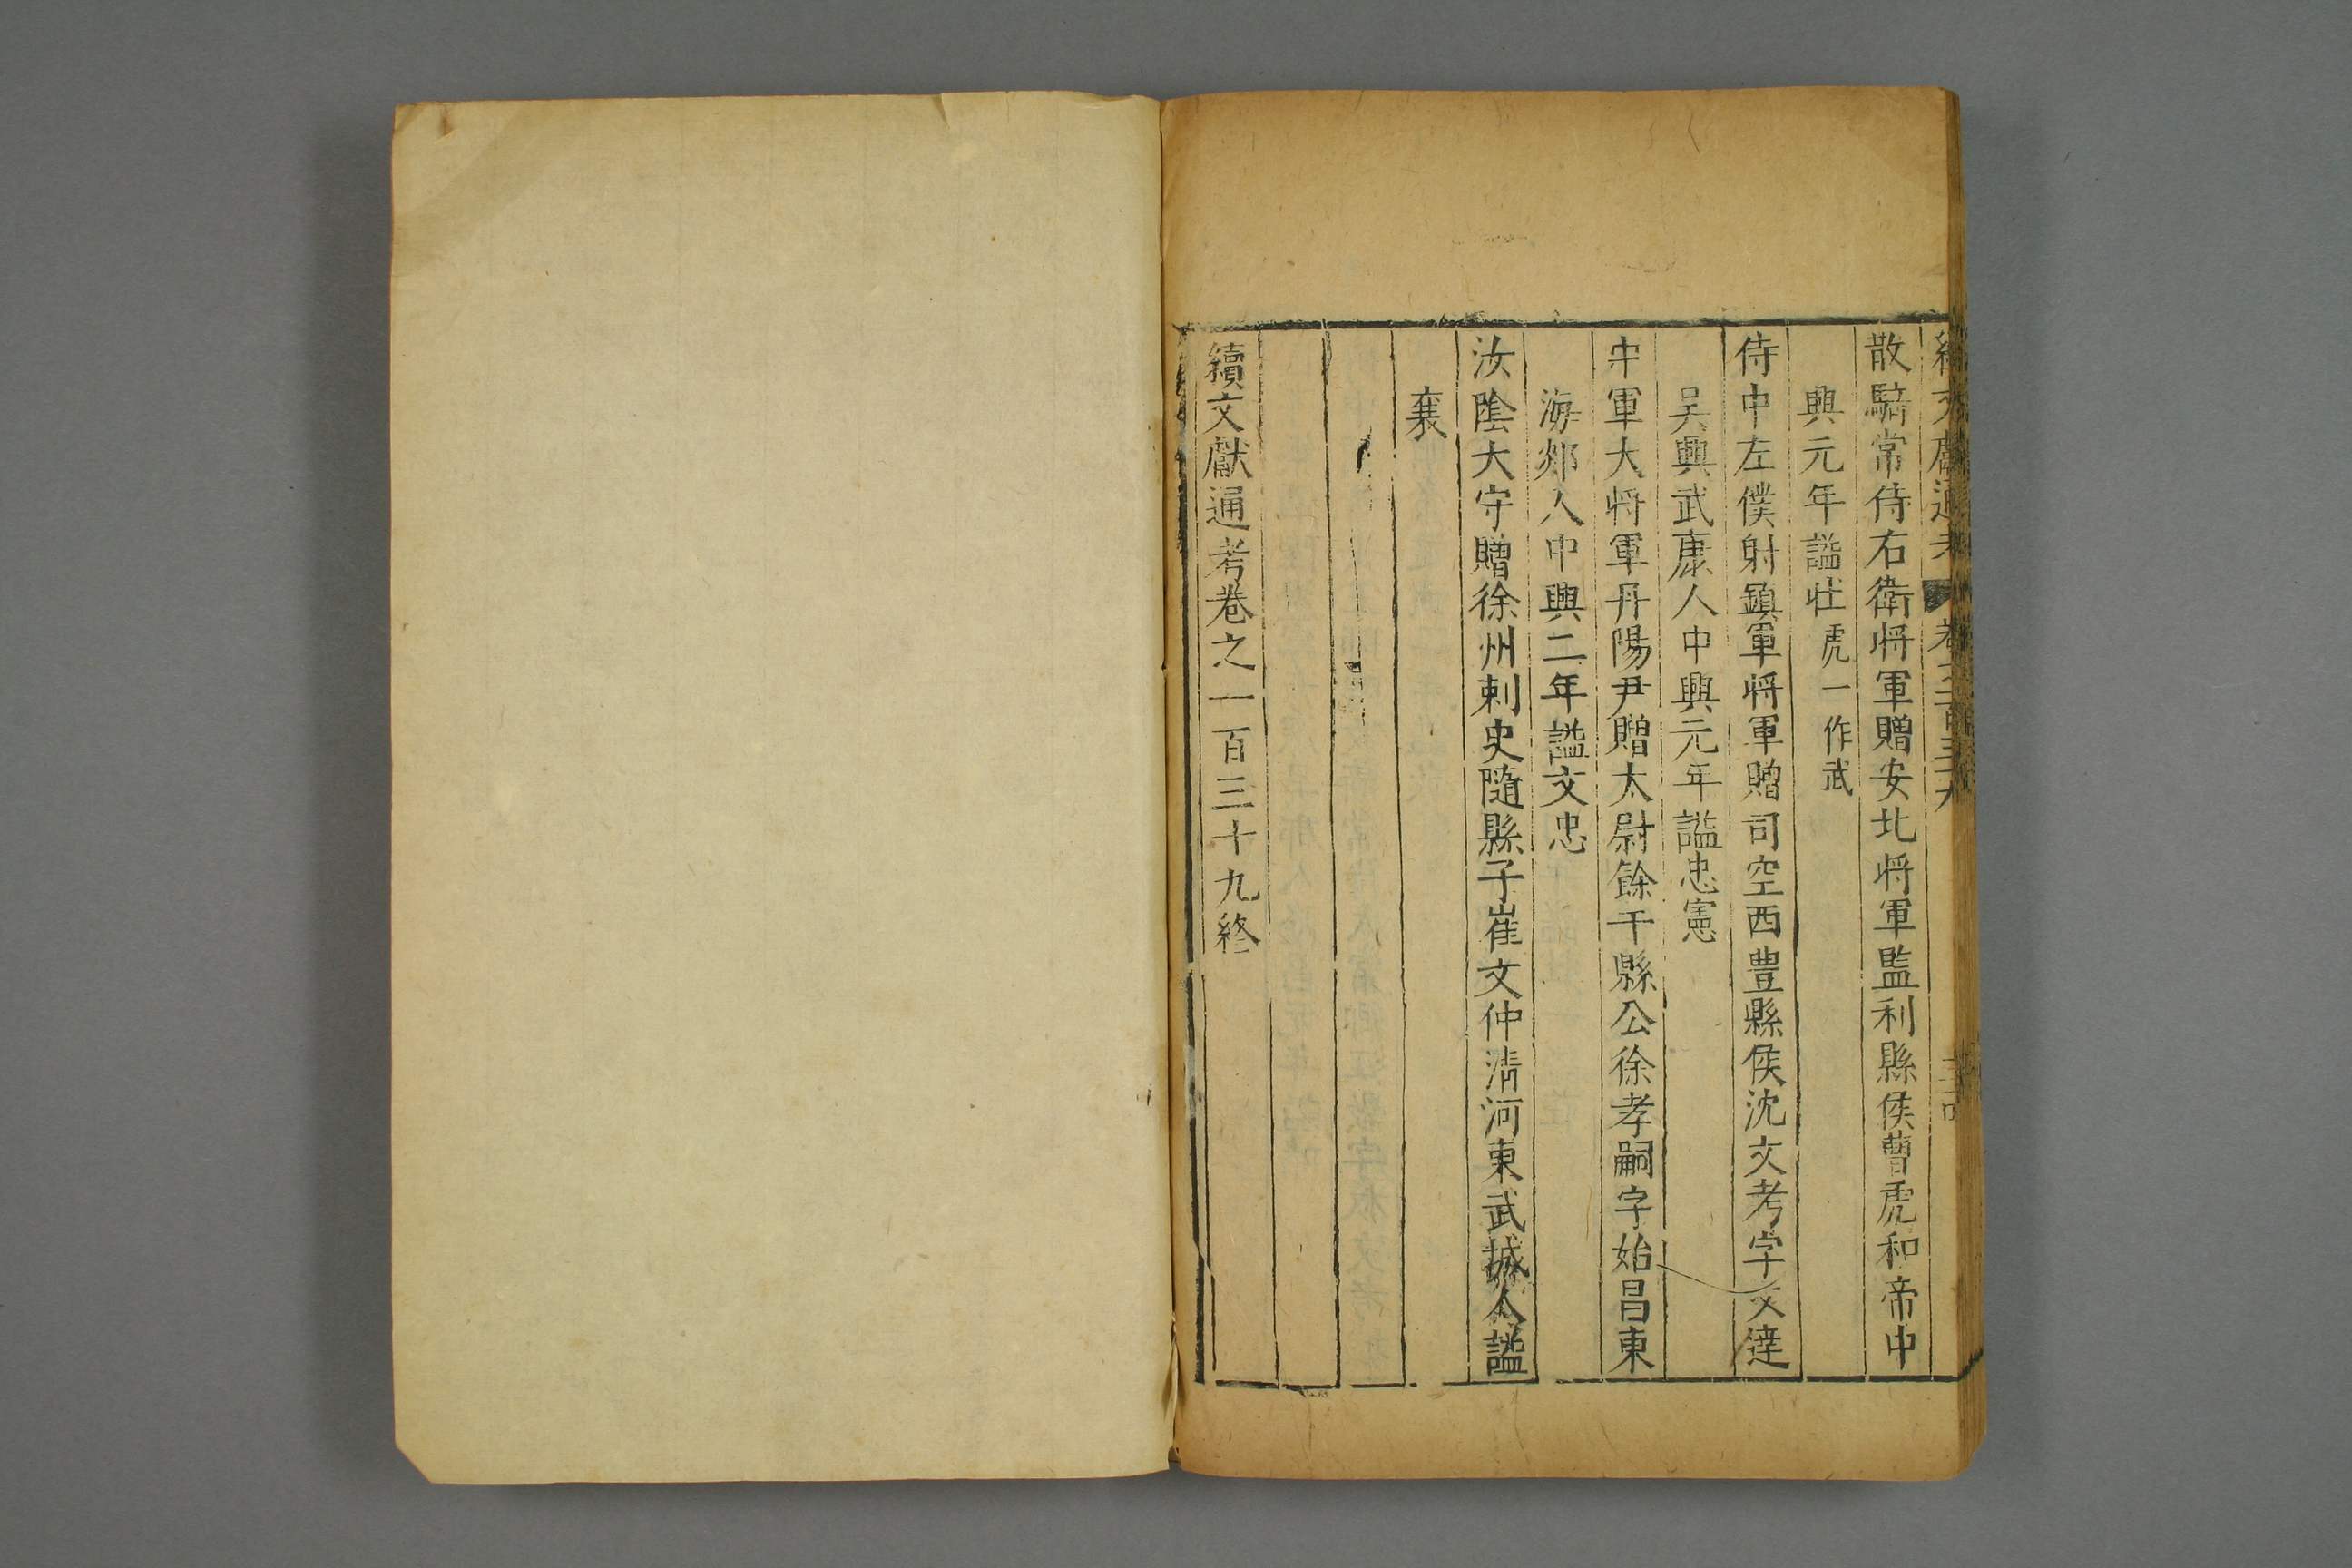 續文獻通考 卷之一百三十九
散騎常侍右衛將軍贈安北將軍監利縣侯曹虎和帝中
興元年謚壯虎一作武
侍中左僕射鎮軍將軍贈司空西豊縣侯沈文考字文達
吳興武康人中興元年謚忠憲
中軍大將軍丹陽尹贈太尉餘干縣公徐孝嗣字始昌東
海郯人中興二年謚文忠
汝陰大守贈徐州刺史隨縣子崔文仲淸河東武城人謚
襄
續文獻通考卷之一百三十九終